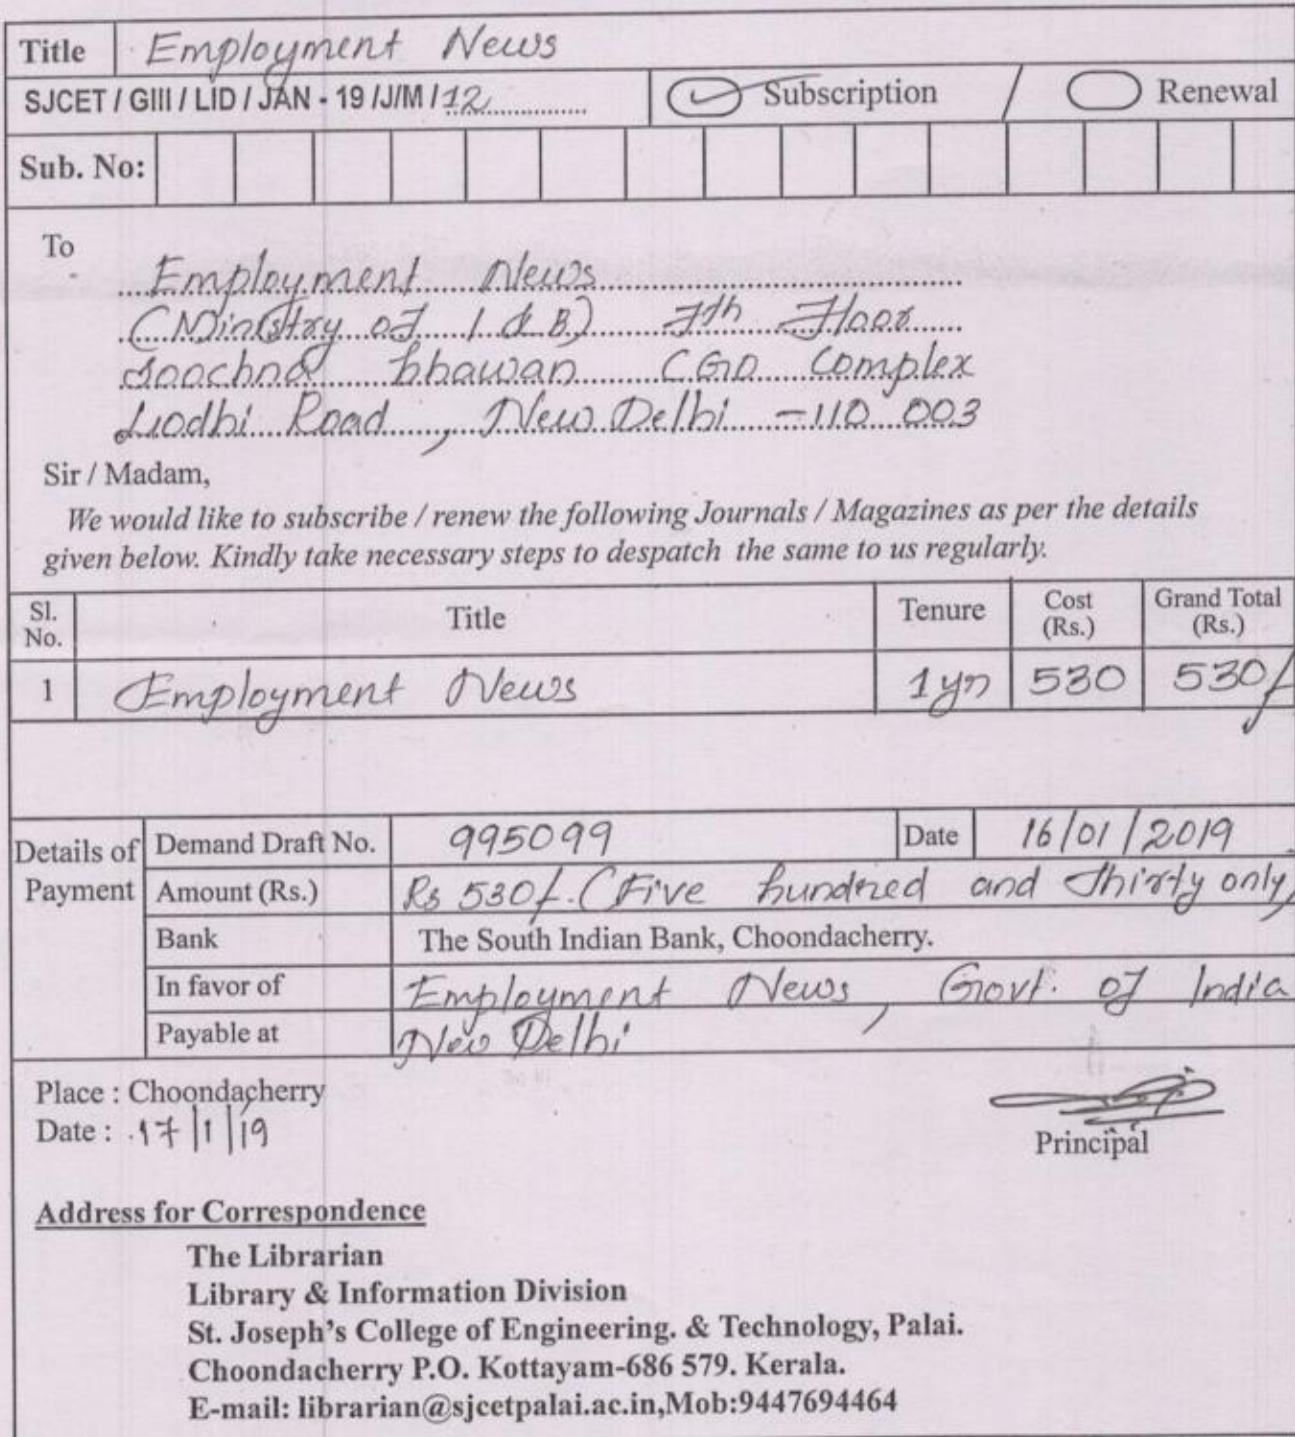 Title Employment News
SJCET / GIII / LID / JAN - 19 /J/M / 12............... Subscription / Renewal
Sub. No:
To
Employment News
(Ministry of I & B) 7th Floor
Soochna Bhawan CGO Complex
Lodhi Road, New Delhi - 110 003
Sir / Madam,
We would like to subscribe / renew the following Journals / Magazines as per the details
given below. Kindly take necessary steps to despatch the same to us regularly.
Sl. No. Title Tenure Cost (Rs.) Grand Total (Rs.)
1 Employment News 1yr 530 530/-
Details of Payment
Demand Draft No. 995099 Date 16/01/2019
Amount (Rs.) Rs 530/- (Five hundred and Thirty only)
Bank The South Indian Bank, Choondacherry.
In favor of Employment News, Govt. of India
Payable at New Delhi
Place : Choondacherry
Date : 17/1/19
Principal
Address for Correspondence
The Librarian
Library & Information Division
St. Joseph's College of Engineering. & Technology, Palai.
Choondacherry P.O. Kottayam-686 579. Kerala.
E-mail: librarian@sjcetpalai.ac.in,Mob:9447694464